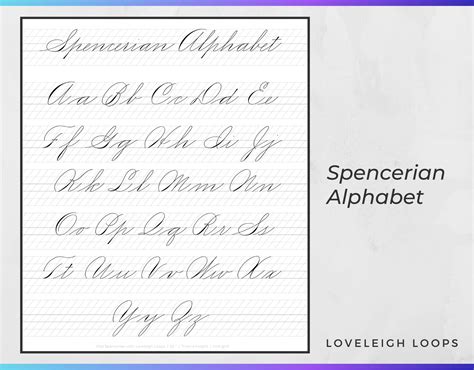 Spencerian Alphabet
Aa Bb Cc Dd Ee
Ff Gg Hh Ii Jj
Kk Ll Mm Nn
Oo Pp Qq Rr Ss
Tt Uu Vv Ww Xx
Yy Zz
Spencerian
Alphabet
LOVELEIGH LOOPS